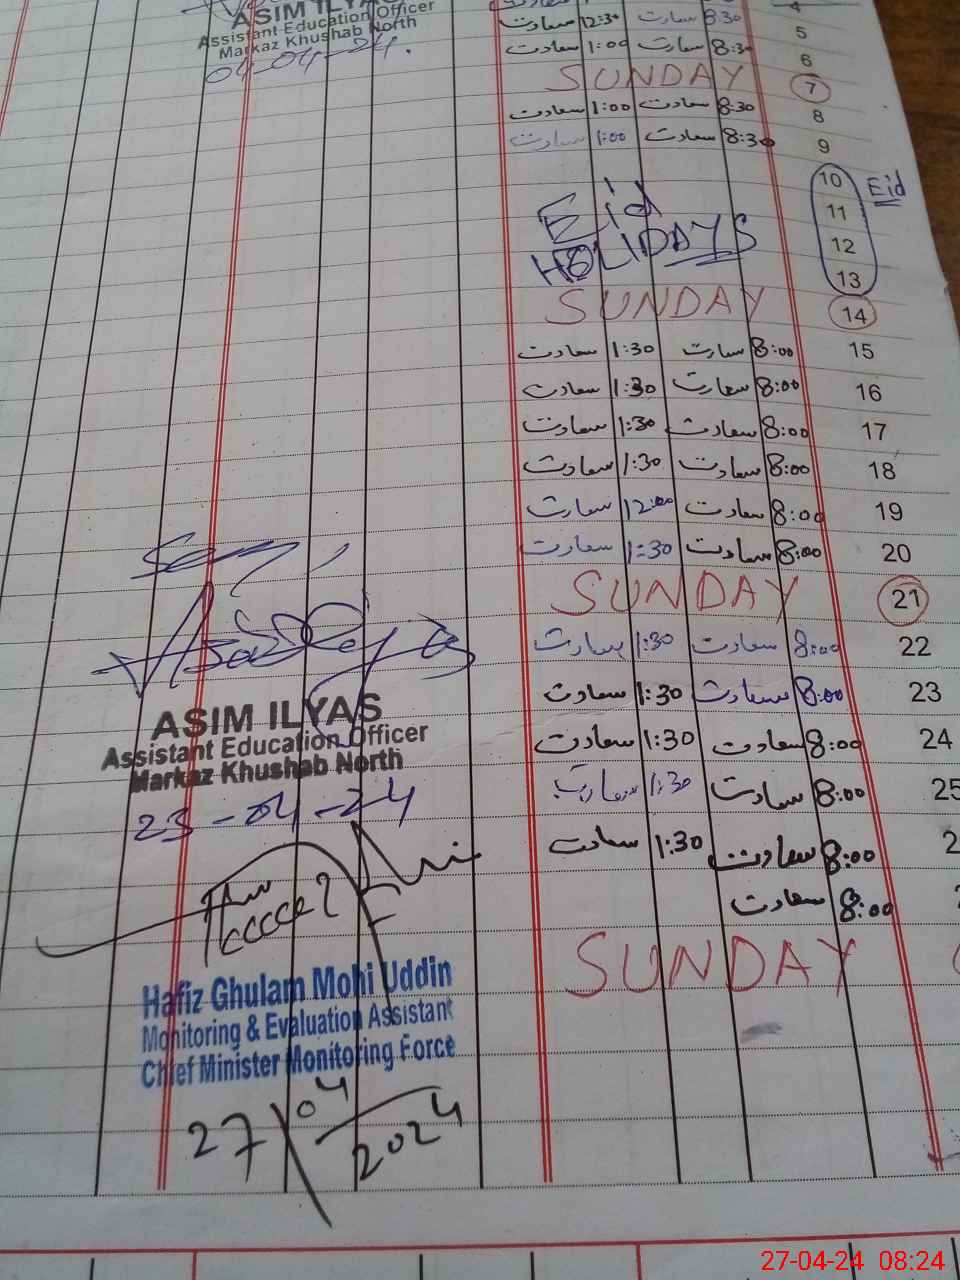 ASIM ILYAS
Assistant Education Officer
Markaz Khushab North
04-04-24.
4
سعادت 12:30 سعادت 8:30 5
سعادت 1:00 سعادت 8:30 6
SUNDAY 7
سعادت 1:00 سعادت 8:30 8
سعادت 1:00 سعادت 8:30 9
10 Eid
11
Eid 12
HOLIDAYS 13
SUNDAY 14
سعادت 1:30 سعادت 8:00 15
سعادت 1:30 سعادت 8:00 16
سعادت 1:30 سعادت 8:00 17
سعادت 1:30 سعادت 8:00 18
سعادت 12:00 سعادت 8:00 19
سعادت 1:30 سعادت 8:00 20
SUNDAY 21
سعادت 1:30 سعادت 8:00 22
سعادت 1:30 سعادت 8:00 23
سعادت 1:30 سعادت 8:00 24
سعادت 1:30 سعادت 8:00 25
سعادت 1:30 سعادت 8:00 2
سعادت 8:00
SUNDAY
ASIM ILYAS
Assistant Education Officer
Markaz Khushab North
23-04-24
Hafiz Ghulam Mohi Uddin
Monitoring & Evaluation Assistant
Chief Minister Monitoring Force
27/04/2024
27-04-24 08:24